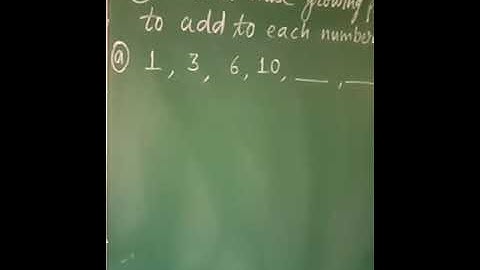 growing
to add to each number
(a) 1, 3, 6, 10, __, __